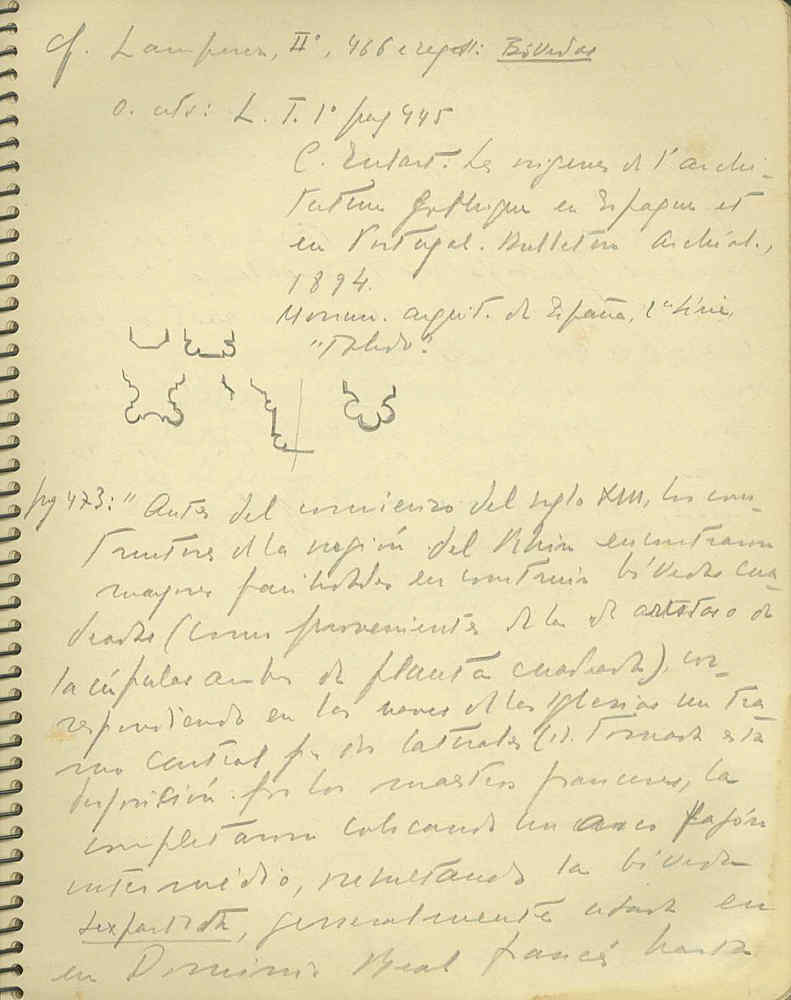 cf. Lamperez, II°, 466 e segs: Bóvedas
o. cits: L. T. 1° pag 445
C. Enlart. Les origines de l'archi-
tecture gothique en Espagne et
en Portugal. Bulletin archéol.,
1894.
Monum. arquit. de España, 1ª série,
"Toledo".
pag 473: "Antes del comienzo del siglo XIII, los cons-
tructores de la región del Rhin encontraron
mayores facilidades en construir bóvedas cua-
dradas (como provenientes de la de aristas o de
la cúpula ambas de planta cuadrada), cor-
respondiendo en las naves de las iglesias un tra
mo central por dos laterales (1). Tomada esta
disposición por los maestros franceses, la
completaron colocando un arco fajón
intermédio, resultando la bóveda
sexpartita, generalmente usada en
en Dominio Real francés hasta